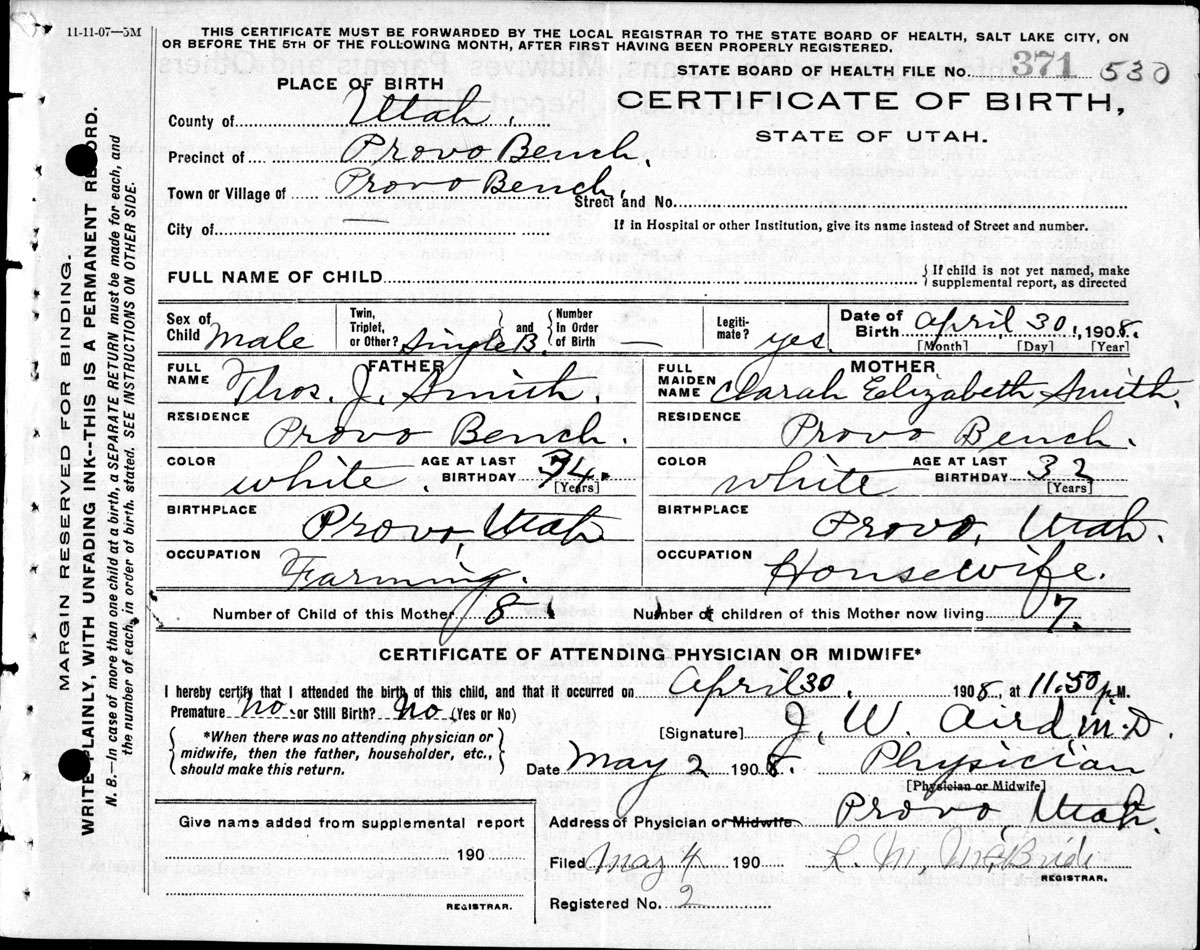 11-11-07—5M
THIS CERTIFICATE MUST BE FORWARDED BY THE LOCAL REGISTRAR TO THE STATE BOARD OF HEALTH, SALT LAKE CITY, ON
OR BEFORE THE 5TH OF THE FOLLOWING MONTH, AFTER FIRST HAVING BEEN PROPERLY REGISTERED.
STATE BOARD OF HEALTH FILE No. 371 530
PLACE OF BIRTH
CERTIFICATE OF BIRTH,
STATE OF UTAH.
County of Utah.
Precinct of Provo Bench.
Town or Village of Provo Bench.
Street and No.
City of —
If in Hospital or other Institution, give its name instead of Street and number.
FULL NAME OF CHILD
If child is not yet named, make
supplemental report, as directed
Sex of Child Male
Twin, Triplet, or Other? Single B. and Number in Order of Birth —
Legitimate? yes.
Date of Birth April 30, 1908.
[Month] [Day] [Year]
FATHER
FULL NAME Thos. J. Smith.
MOTHER
FULL MAIDEN NAME Sarah Elizabeth Smith.
RESIDENCE Provo Bench.
RESIDENCE Provo Bench.
COLOR white. AGE AT LAST BIRTHDAY 34. [Years]
COLOR white AGE AT LAST BIRTHDAY 32 [Years]
BIRTHPLACE Provo, Utah
BIRTHPLACE Provo, Utah.
OCCUPATION Farming.
OCCUPATION Housewife.
Number of Child of this Mother 8
Number of children of this Mother now living 7.
CERTIFICATE OF ATTENDING PHYSICIAN OR MIDWIFE*
I hereby certify that I attended the birth of this child, and that it occurred on April 30. 1908, at 11.50 P.M.
Premature No or Still Birth? No (Yes or No)
*When there was no attending physician or
midwife, then the father, householder, etc.,
should make this return.
[Signature] J. W. Aird M.D.
Date May 2 1908. Physician
[Physician or Midwife]
Address of Physician or Midwife Provo, Utah.
Give name added from supplemental report
190
REGISTRAR.
Filed May 4 190 L. M. McBride
REGISTRAR.
Registered No. 2
MARGIN RESERVED FOR BINDING.
WRITE PLAINLY, WITH UNFADING INK--THIS IS A PERMANENT RECORD.
N. B.—In case of more than one child at a birth, a SEPARATE RETURN must be made for each, and
the number of each, in order of birth, stated. SEE INSTRUCTIONS ON OTHER SIDE.